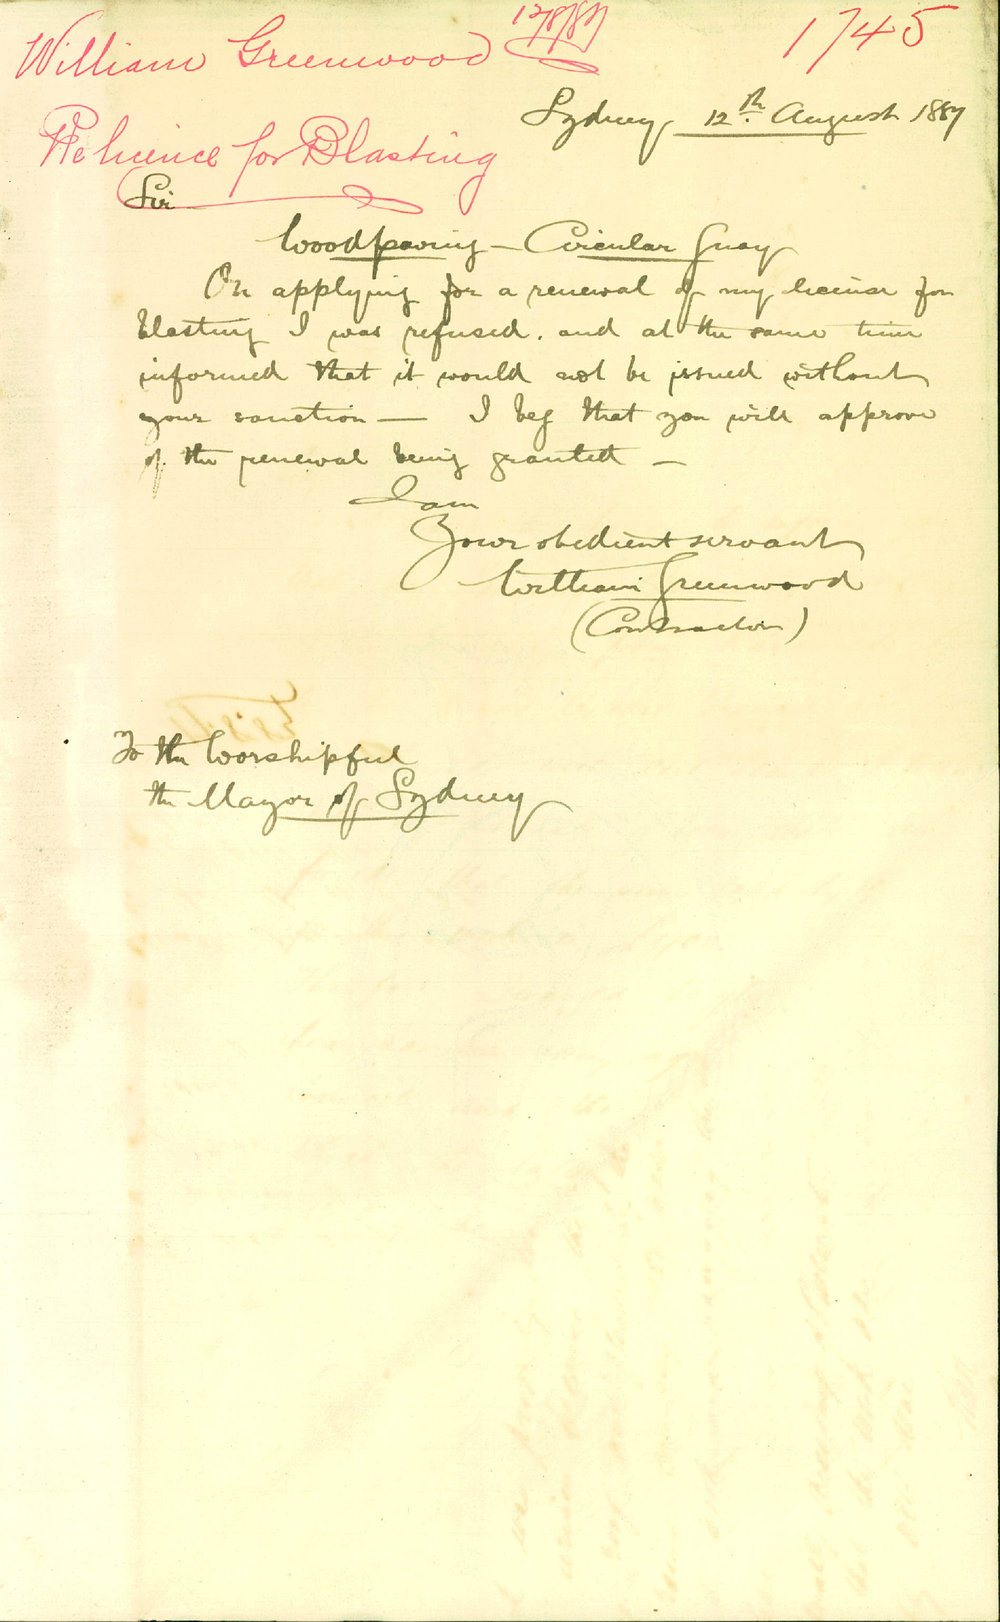 William Greenwood 12/8/87 1745
Re licence for Blasting
Sydney 12th August 1887
Sir
Woodpaving - Circular Quay
On applying for a renewal of my license for
blasting I was refused. and at the same time
informed that it would not be issued without
your sanction — I beg that you will approve
of the renewal being granted —
I am
Your obedient servant
William Greenwood
(Contractor)
To the Worshipful
the Mayor of Sydney